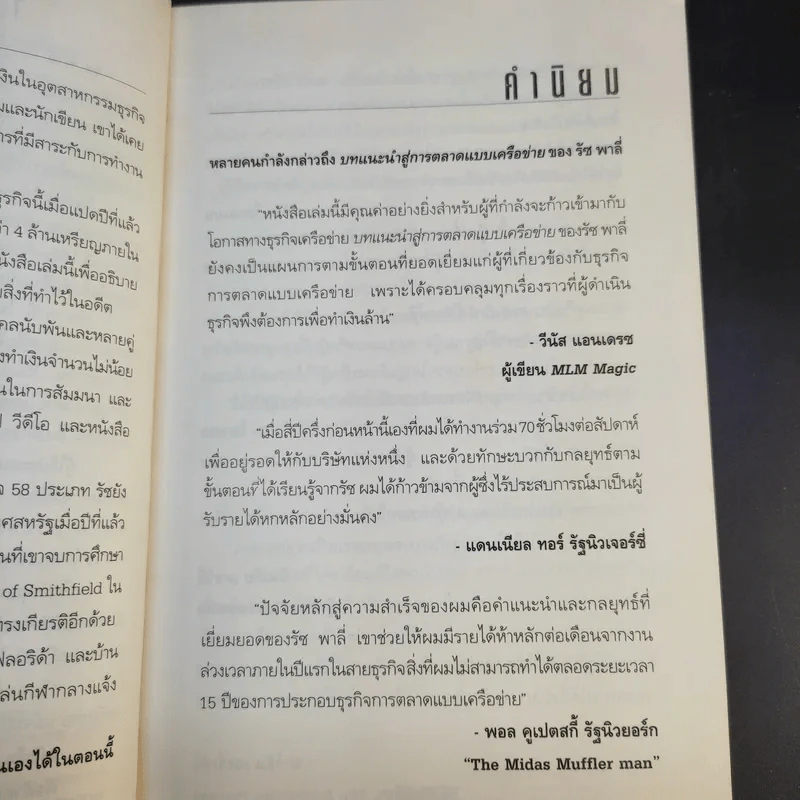 งินในอุตสาหกรรมธุรกิจ
มและนักเขียน เขาได้เคย
ารที่มีสาระกับการทำงาน
ธุรกิจนี้เมื่อแปดปีที่แล้ว
ว่า 4 ล้านเหรียญภายใน
นังสือเล่มนี้เพื่ออธิบาย
ยสิ่งที่ทำไว้ในอดีต
คลนับพันและหลายคู่
งทำเงินจำนวนไม่น้อย
นในการสัมมนา และ
ป วีดีโอ และหนังสือ
จ 58 ประเภท รัซยัง
ศสหรัฐเมื่อปีที่แล้ว
นที่เขาจบการศึกษา
of Smithfield ใน
ทรงเกียรติอีกด้วย
ฟลอริด้า และบ้าน
ล่นกีฬากลางแจ้ง
นเองได้ในตอนนี้
คำนิยม
หลายคนกำลังกล่าวถึง บทแนะนำสู่การตลาดแบบเครือข่าย ของ รัซ พาลี่
"หนังสือเล่มนี้มีคุณค่าอย่างยิ่งสำหรับผู้ที่กำลังจะก้าวเข้ามากับ
โอกาสทางธุรกิจเครือข่าย บทแนะนำสู่การตลาดแบบเครือข่าย ของรัซ พาลี่
ยังคงเป็นแผนการตามขั้นตอนที่ยอดเยี่ยมแก่ผู้ที่เกี่ยวข้องกับธุรกิจ
การตลาดแบบเครือข่าย เพราะได้ครอบคลุมทุกเรื่องราวที่ผู้ดำเนิน
ธุรกิจพึงต้องการเพื่อทำเงินล้าน"
- วีนัส แอนเดรซ
ผู้เขียน MLM Magic
"เมื่อสี่ปีครึ่งก่อนหน้านี้เองที่ผมได้ทำงานร่วม 70 ชั่วโมงต่อสัปดาห์
เพื่ออยู่รอดให้กับบริษัทแห่งหนึ่ง และด้วยทักษะบวกกับกลยุทธ์ตาม
ขั้นตอนที่ได้เรียนรู้จากรัซ ผมได้ก้าวข้ามจากผู้ซึ่งไร้ประสบการณ์มาเป็นผู้
รับรายได้หกหลักอย่างมั่นคง"
- แดนเนียล ทอร์ รัฐนิวเจอร์ซี่
"ปัจจัยหลักสู่ความสำเร็จของผมคือคำแนะนำและกลยุทธ์ที่
เยี่ยมยอดของรัซ พาลี่ เขาช่วยให้ผมมีรายได้ห้าหลักต่อเดือนจากงาน
ล่วงเวลาภายในปีแรกในสายธุรกิจสิ่งที่ผมไม่สามารถทำได้ตลอดระยะเวลา
15 ปีของการประกอบธุรกิจการตลาดแบบเครือข่าย"
- พอล คูเปตสกี้ รัฐนิวยอร์ก
"The Midas Muffler man"